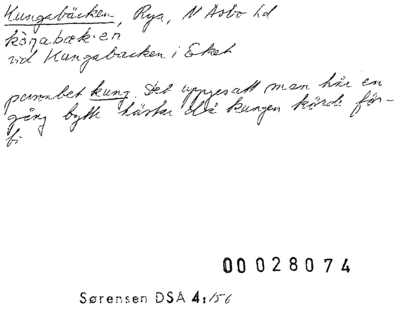 Kungabäcken, Rya, N Åsbo hd
kòŋabæk·en
vid Kungabacken i Eket
personbet kung. Det uppges att man här en
gång bytte hästar då kungen körde för-
bi
00 028074
Sørensen DSA 4:156